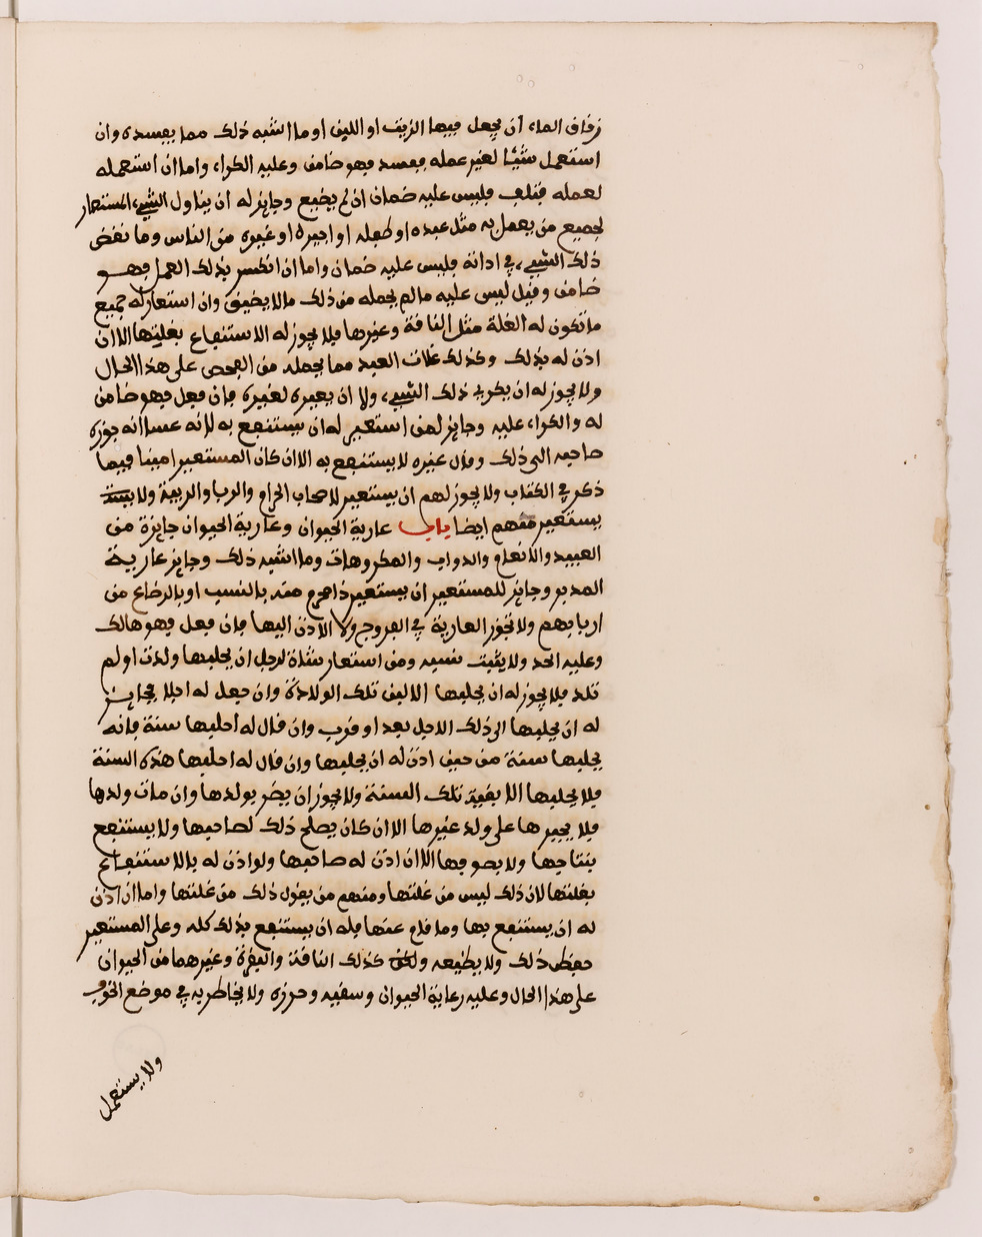 زقاق الماء ان يجعل فيها الزيت او اللبن او ما اشبه ذلك مما يفسده وان
استعمل شيئا لغير عمله ففسد فهو ضامن وعليه الكراء واما ان استعمله
لعمله فتلف فليس عليه ضمان ان لم يضيع وجايز له ان يناول الشيء المستعار
لجميع من يعمل به مثل عبده او طفله او اجيره او غيره من الناس وما نقص
ذلك الشيء في اداته فليس عليه ضمان واما ان انكسر بذلك العمل فهو
ضامن وقيل ليس عليه ما لم يحمله من ذلك ما لا يطيق وان استعار له جميع
ما تكون له الغلة مثل الناقة وغيرها فلا يجوز له الاستنفاع بغلتها الا ان
اذن له بذلك وكذلك غلات العبد مما يجعله من الفحص على هذا الحال
ولا يجوز له ان يكري ذلك الشيء ولا ان يعيره لغيره فان فعل فهو ضامن
له والكراء عليه وجايز لمن استعير له ان يستنفع به لانه عسا انه جوزه
صاحبه الى ذلك وقال غيره لا يستنفع به الا ان كان المستعير امينا فيما
ذكر في الكتاب ولا يجوز لهم ان يستعير لاصحاب الحرام والربا والريبة ولا
يستعير منهم ايضا باب عارية الحيوان وعارية الحيوان جايزة من
العبيد والانعام والدواب والمكروهات وما اشبه ذلك وجايز عارية
المدبر وجايز للمستعير ان يستعير ذا محرم منه بالنسب او بالرضاع من
اربابهم ولا تجوز العارية في الفروج ولا الاذن اليها فان فعل فهو هالك
وعليه الحد ولا يثبت نسبه ومن استعار شاة لرجل ان يحلبها ولدت او لم
تلد فلا يجوز له ان يحلبها الا لبن تلك الولادة وان جعل له اجلا فجايز
له ان يحلبها الى ذلك الاجل بعد او قرب وان قال له احلبها سنة فانه
يحلبها سنة من حين اذن له ان يحلبها وان قال له احلبها هذه السنة
فلا يحلبها الا بقية تلك السنة ولا يجوز ان يضر بولدها وان مات ولدها
فلا يجبرها على ولد غيرها الا ان كان يصلح ذلك لصاحبها ولا يستنفع
بنتاجها ولا بصوفها الا ان اذن له صاحبها ولو اذن له بالاستنفاع
بغلتها لان ذلك ليس من غلتها ومنهم من يقول ذلك من غلتها واما ان اذن
له ان يستنفع بها وما قام عنها فله ان يستنفع بذلك كله وعلى المستعير
حفظ ذلك ولا يضيعه كذلك الناقة والبقرة وغيرهما من الحيوان
على هذا الحال وعليه رعاية الحيوان وسقيه وحرزه ولا يخاطر به في موضع الخوف
ولا يستعمل